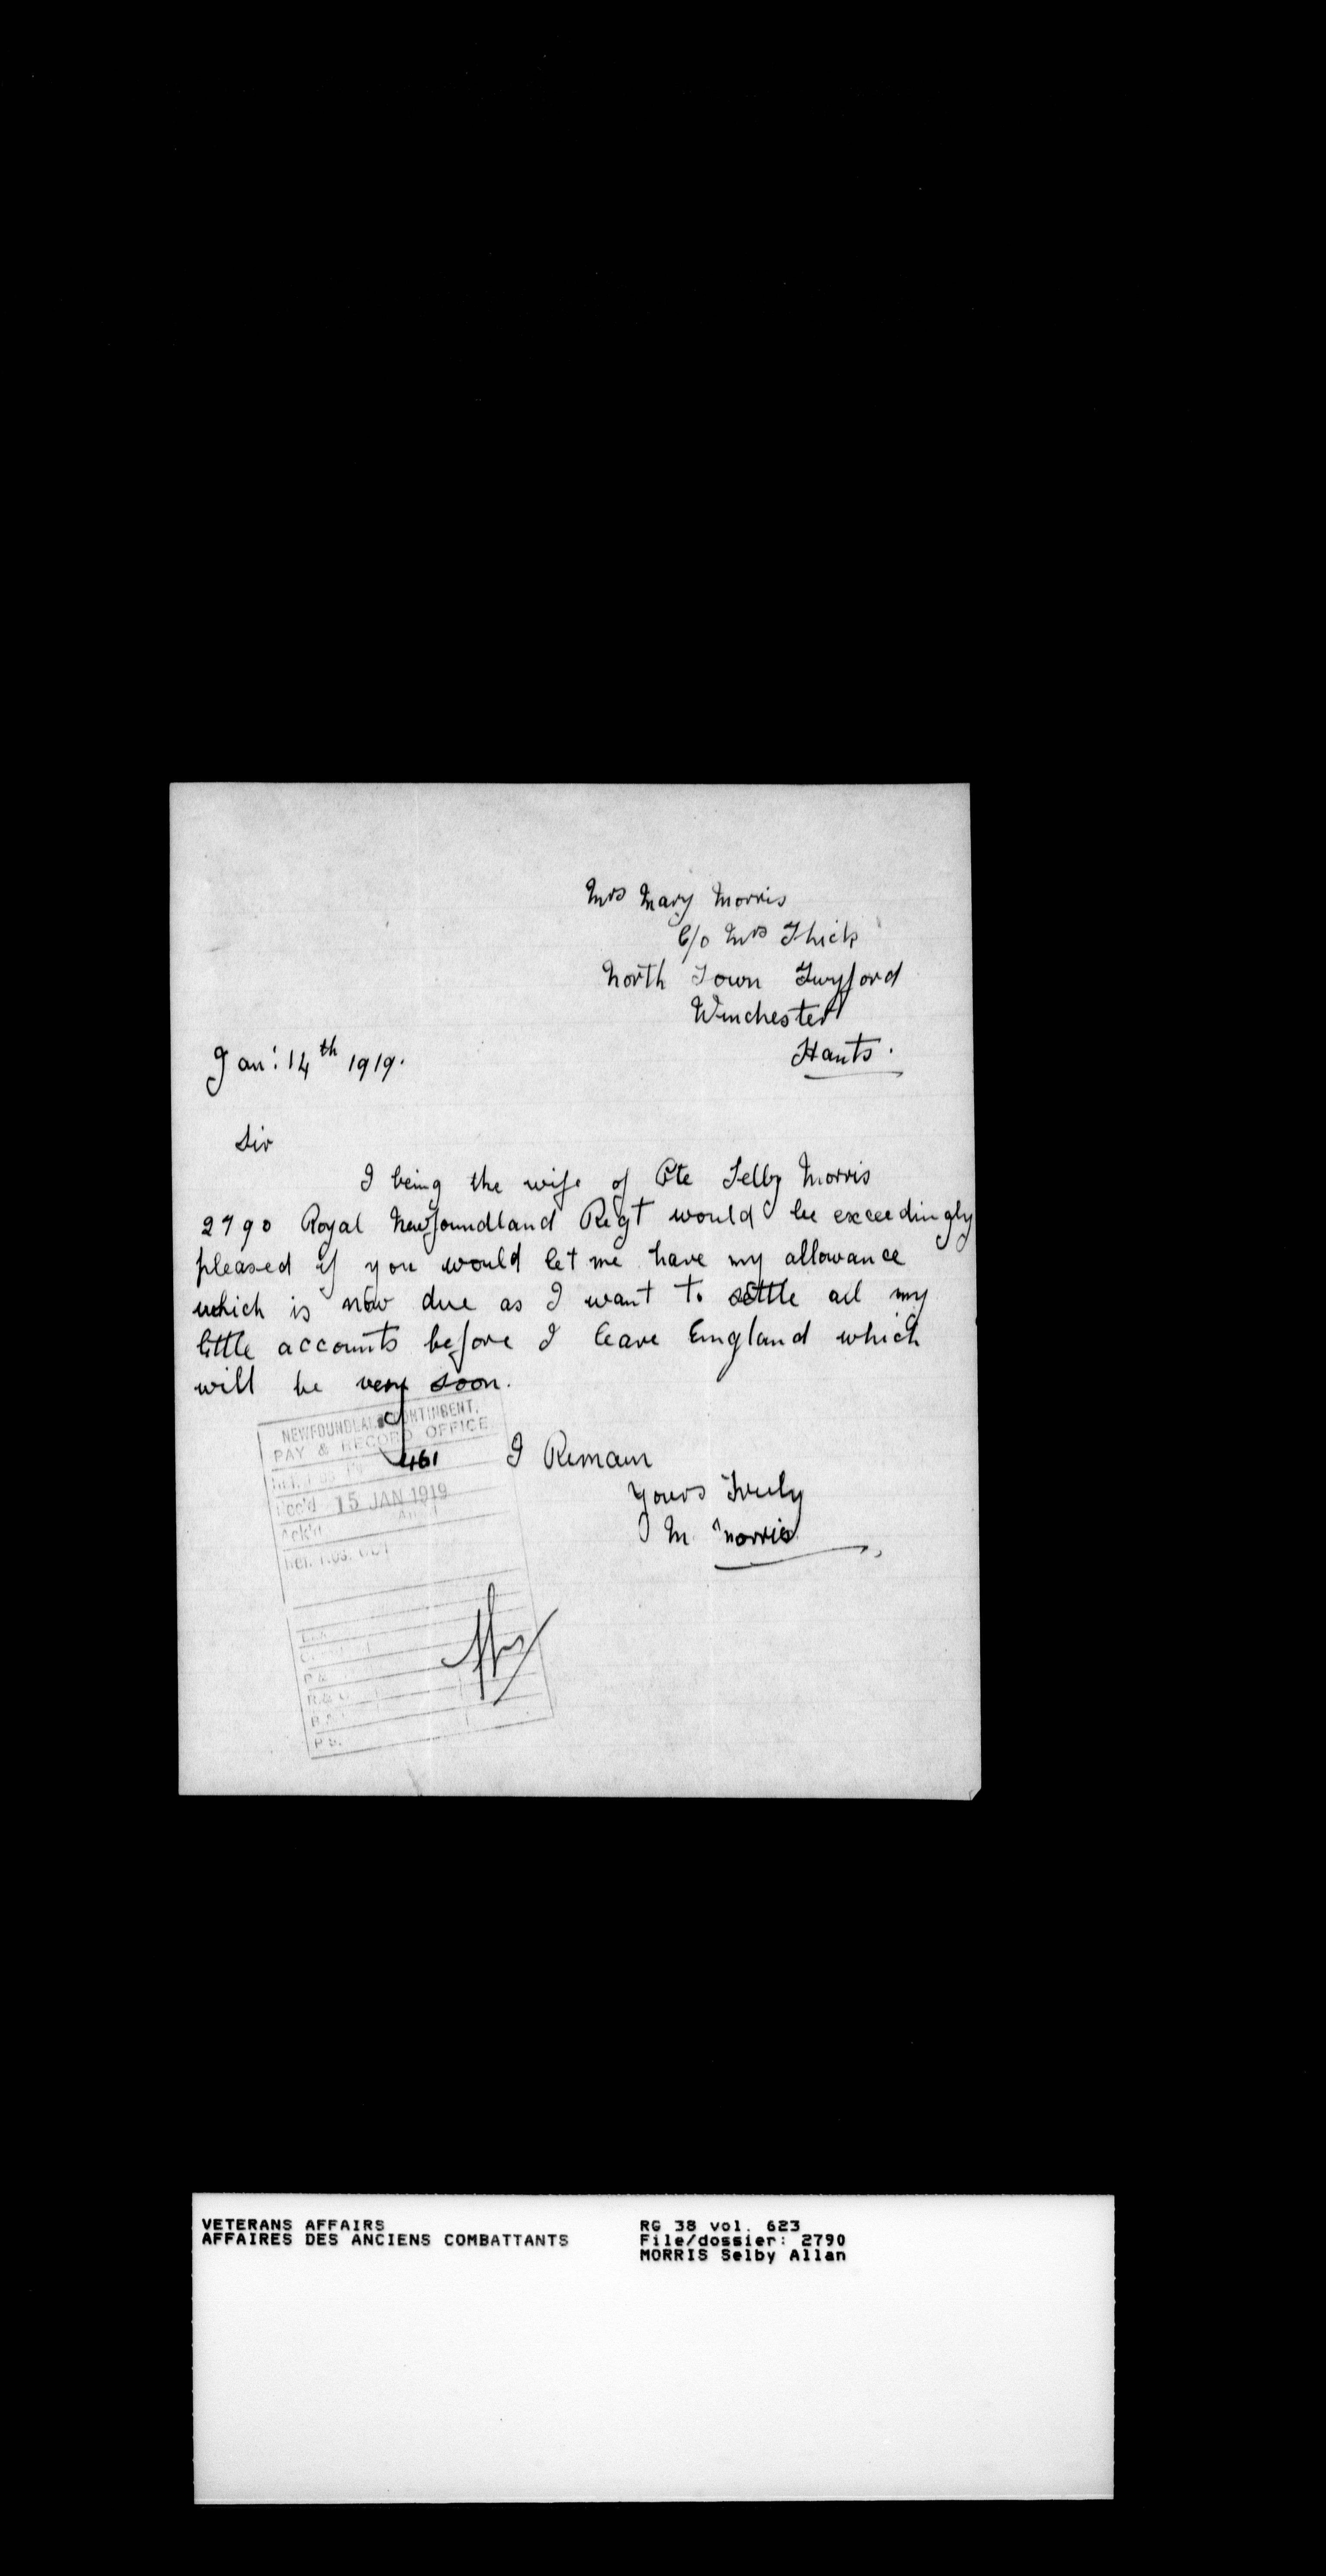 Mrs Mary Morris
C/o Mrs Thick
North Town Twyford
Winchester
Hants.
Jan: 14th 1919.
Sir
I being the wife of Pte Selby Morris
2790 Royal Newfoundland Regt would be exceedingly
pleased if you would let me have my allowance
which is now due as I want to settle all my
little accounts before I leave England which
will be very soon.
I Remain
Yours Truly
M. Morris
NEWFOUNDLAND CONTINGENT,
PAY & RECORD OFFICE
461
Rec'd 15 JAN 1919
Ack'd
VETERANS AFFAIRS
AFFAIRES DES ANCIENS COMBATTANTS
RG 38 vol. 623
File/dossier: 2790
MORRIS Selby Allan